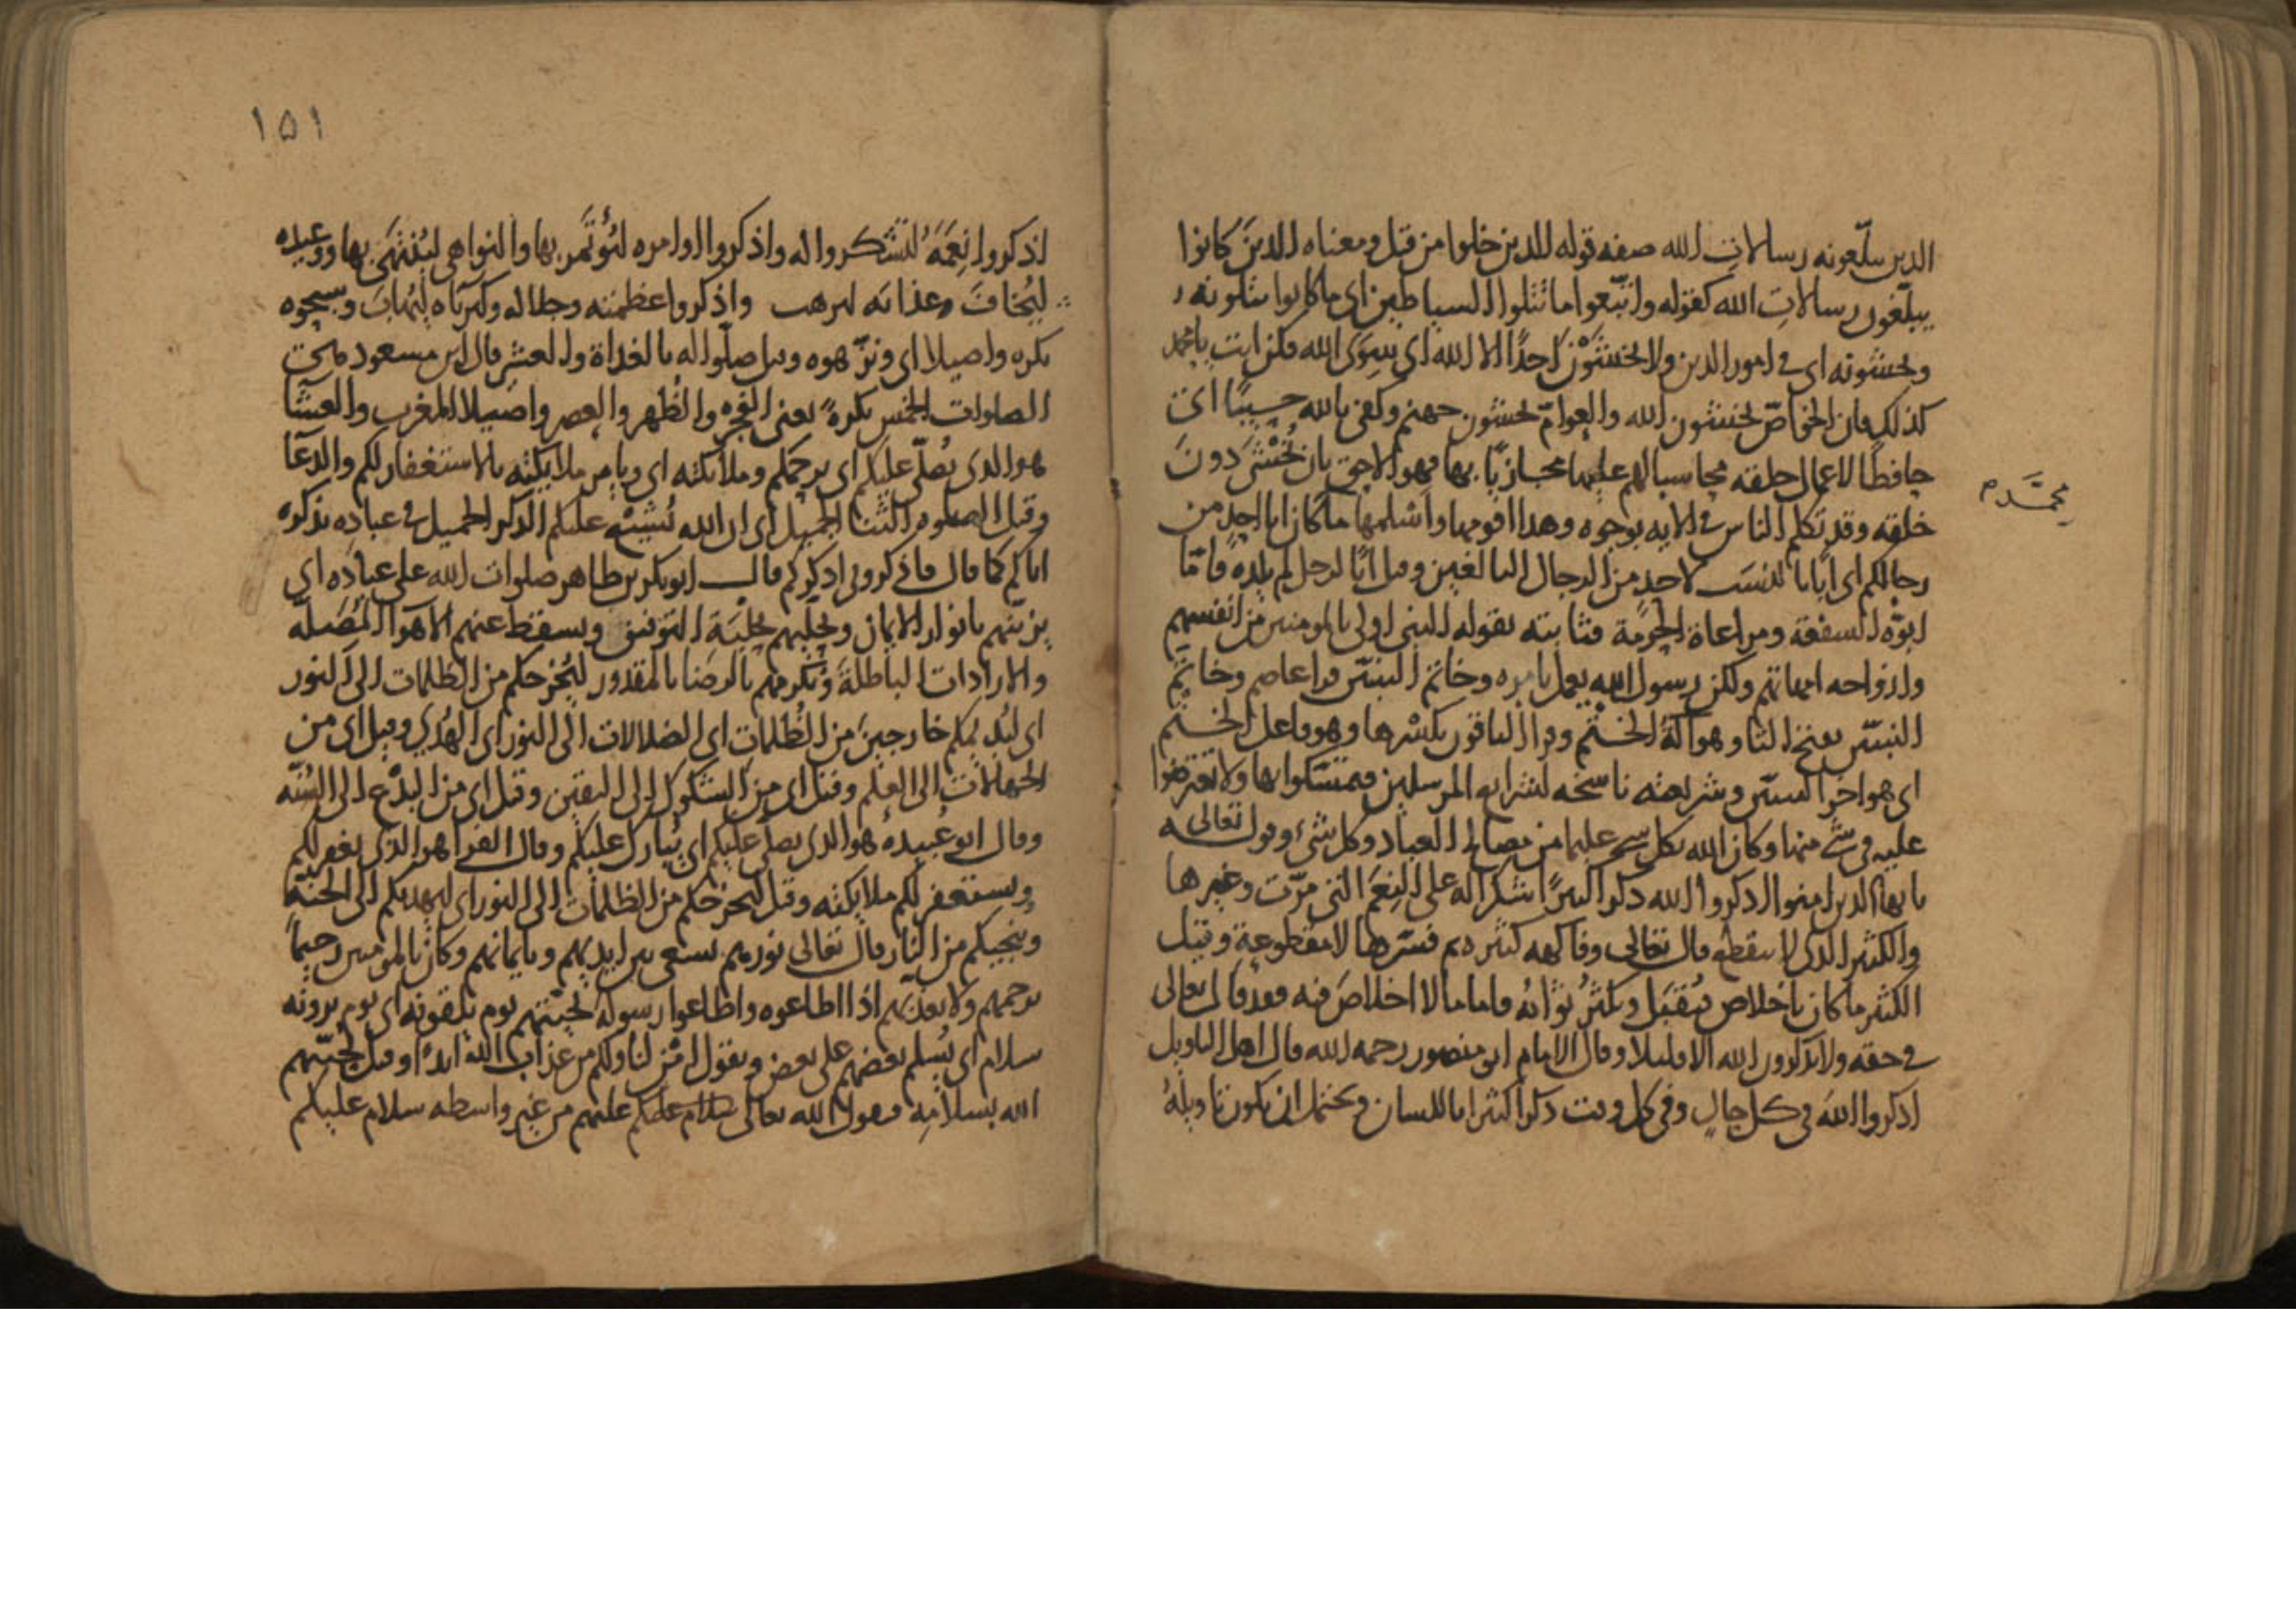 الذين يبلّغونه رسالات الله صفه قوله للذين خلوا من قبل ومعناه الذين كانوا
يبلّغون رسالات الله كقوله واتّبعوا ما تتلوا الشياطين اى ما كانوا يتلونه
ويخشونه اى فى امور الدين ولا يخشون احدًا الا الله اى سوى الله فكن انت يا محمد
كذلك فان الخواصّ يخشون الله والعوامّ يخشون جهنم وكفى بالله حسيبًا اى
حافظًا لاعمال خلقه محاسبا لهم عليها مجازيًا بها فهو الاحق بان يُخشى دون
خلقه وقد تكلم الناس فى الايه بوجوه وهذا اقومها واسلمها ما كان ابا احد من
محمّد م
رجالكم اى ابًا بالنسب لاحدٍ من الرجال البالغين وقيل ابًا لرجل لم يلده فامّا
ابوّه الشفقة ومراعاة الحرمة فثابته بقوله النبى اولى بالمومنين من انفسهم
وازواجه امهاتهم ولكن رسول الله يعمل بامره وخاتم النبيّين قرا عاصم وخاتم
النبيّين بفتح التا وهو آلة الختم وقرا الباقون بكسرها وهو فاعل الختم
اى هو اخر النبيّين وشريعته ناسخه لشرايع المرسلين فتمسّكوا بها ولا تعترضوا
عليه فى شى منها وكان الله بكل شى عليما من مصالح العباد وكل شىء وقوله تعالى
يا يها الذين امنوا اذكروا الله ذكرا كثيرًا شكرا له على النعم التى مرّت وغيرها
والكثير الذى لا ينقطع قال تعالى وفاكهه كثيره ثم فسّرها لا مقطوعةٍ وقيل
الكثير ما كان باخلاص فيُقبَل ويكثرُ ثوابهُ واما ما لا اخلاصَ فيه فقد قال تعالى
فى حقه ولا يذكرون الله الا قليلا وقال الامام ابو منصور رحمه الله قال اهل التاويل
اذكروا الله فى كل حالٍ وفى كل وقت ذكرا كثيرا باللسان ويحتمل ان يكون تاويلهُ
١٥١
اذكروا نِعَمَهُ لتشكروا له واذكروا اوامره لتُؤتَمر بها والنواهى ليُنتهَى بها ووعيده
ليُخافَ وعذابه ليرهب واذكروا عظمته وجلاله وكبرياه ليُهابَ وسبحوه
بكره واصيلا اى ونزّهوه وقيل صلّوا له بالغداة والعشى قال ابن مسعود
الصلوات الخمس بكرةً يعنى الفجر والظهر والعصر واصيلا المغرب والعشا
هو الذى يُصلّى عليكم اى يرحمكم وملائكته اى ويامر ملائكته بالاستغفار لكم والدعا
وقيل الصلوه الثنا الجميل اى ان الله يُثنِى عليكم الذكر الجميل فى عباده بذكره
اياكم كما قال فاذكرونى اذكركم قال ابو بكر بن طاهر صلوات الله على عباده اى
يزيّنهم بانوار الايمان ويحلّيهم بحلية التوفيق ويسقط عنهم الاهوا المُضِلّه
والارادات الباطلة ويُكرمهم بالرضا بالمقدور ليُخرجكم من الظلمات الى النور
اى ليُديمكم خارجين من الظُلمات اى الضلالات الى النور اى الهُدى وقيل اى من
الجهلات الى العلم وقيل اى من الشكوك الى اليقين وقيل اى من البدْع الى السُنّه
وقال ابو عُبيدهُ هو الذى يصلى عليكم اى يُبارك عليكم وقال الفرا هو الذى يغفر لكم
ويستغفر لكم ملايكته وقيل ليخرجكم من الظلمات الى النور اى ليهديكم الى الجنّه
ويُنجيكم من النار قال تعالى نورهم يسعى بين ايديهم وبايمانهم وكان بالمومنين رحيمًا
يرحمهم ولا يعذّبهم اذا اطاعوه واطاعوا رسوله تحيّتهم يوم يلقونه اى يوم يرونه
سلام اى يُسلم بعضهم على بعض ويقول امْن لنا ولكم من عذاب الله ابدا وقيل تحيّتهم
الله بسلامه فيقول الله تعالى سلام عليكم عليهم من غير واسطه سلام عليكم